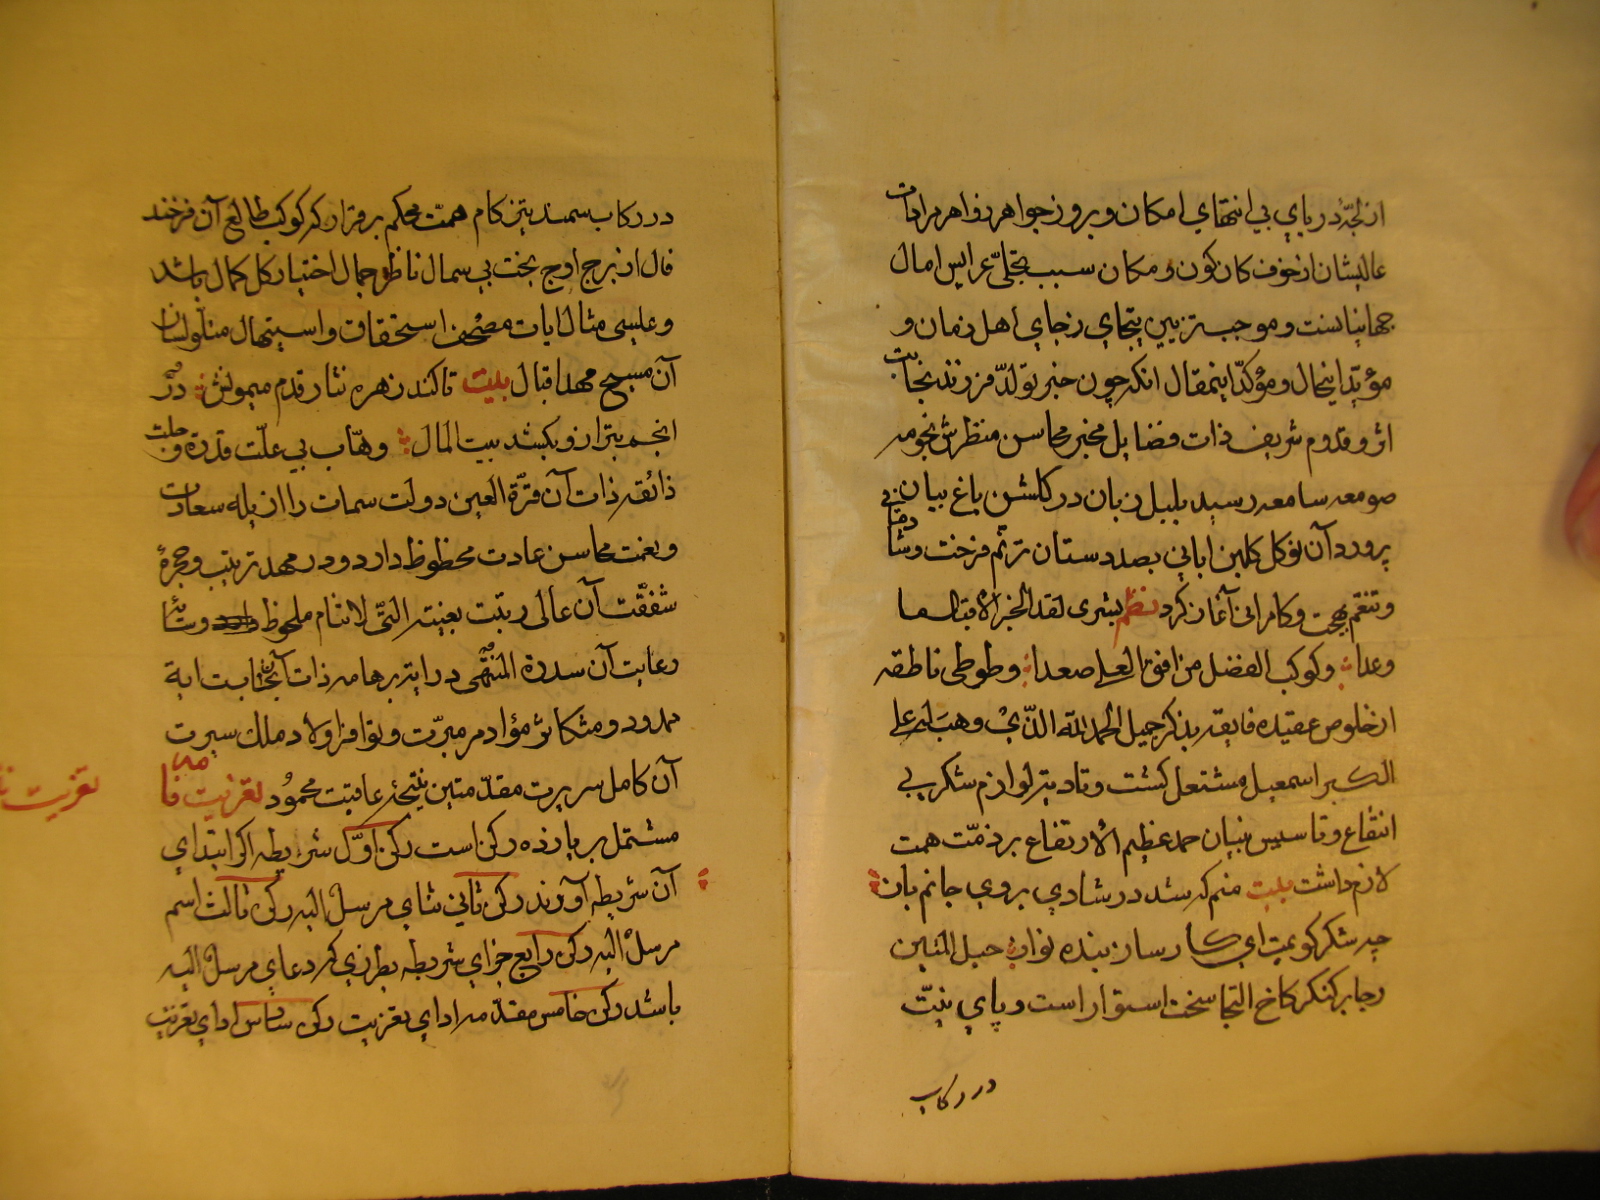 از لجّهٔ دریای بی انتهای امکان و بروز جواهر زواهر مرادات
عالیشان از خوف کان کون و مکان سبب تجلّی عرایس امال
جهانیانست و موجب تزیین رجای اهل زمان و
مؤیّد اینحال و مؤکّد اینمقال انکه چون خبر تولّد فرزند نجابت
اثر و قدوم شریف ذات فضایل مخبر محاسن منظرش بحومه
صومعه سامعه رسید بلبل زبان در گلشن باغ بیان بی
پرورد آن نوگل گلبن امانی بصد دستان ترنّم فرحت وشادمانی
و تنغّم بهجت و کامرانی آغاز کرد نظم بشری لقد انجز الاقبال ما
وعدا وکوکب الفضل من افق العلی صعدا و طوطی ناطقه
از خلوص عقیده فایقه بذکر جمیل الحمد لله الذّی وهب لی علی
الکبر اسمعیل مشتعل کشت و تادیه لوازم شکر بی
انقطاع و تاسیس بنیان حمد عظیم الارتفاع بر ذمّت همت
لازم داشت بیت منم که شد در شادی بروی جانم باز
چه شکر کویمت ای کارساز بنده نواز حبل المتین
رجا بر کنکره کاخ التجا سخت استوار است و پای نیّت
در رکاب
در رکاب سمند تیز کام همّت محکم برقرار که کوکب طالع آن فرخنده
فال از برج اوج بخت بی سمال ناظر جمال اختیار کل کمال باشد
و علیی مثال ایات مصحف استحقاق و استیهال متلوّ لسان
آن مسیح مهد اقبال بیت تا کند زهره نثار قدم میمونش دُرّ
انجم بترازو بکشد بیت المال وهّاب بی علّت قدرة و جلت
ذائقه ذات آن قرّة العین دولت سمات را از پله سعادت
و نعمت محاسن عادت محظوظ دارد و در مهد تربیت و حجرهٔ
شفقّت آن عالی رتبت بعینه التّی لا تنام ملحوظ و سایهٔ
رعایت آن سدرة المنتهی درایه بر هامه ذات آنجناب ابد
ممدود و متکاثر مؤاد مرمبرّت و توافر اولاد ملک سیرت
آن کامل سریرت مقدّمه متین نتیجهٔ عاقبت محمود تعزیت نامه
تعزیت نا
مشتمل بر یازده رکن است رکن اوّل شریطه اکر ابتدای
آن شریطه آورند رکن ثانی ثنای مرسل الیه رکن ثالث اسم
مرسل الیه رکن رابع جزای شریطه بطرزی که دعای مرسل الیه
باشد رکن خامس مقدّمه ادای تعزیت رکن سادس ادای تعزیت